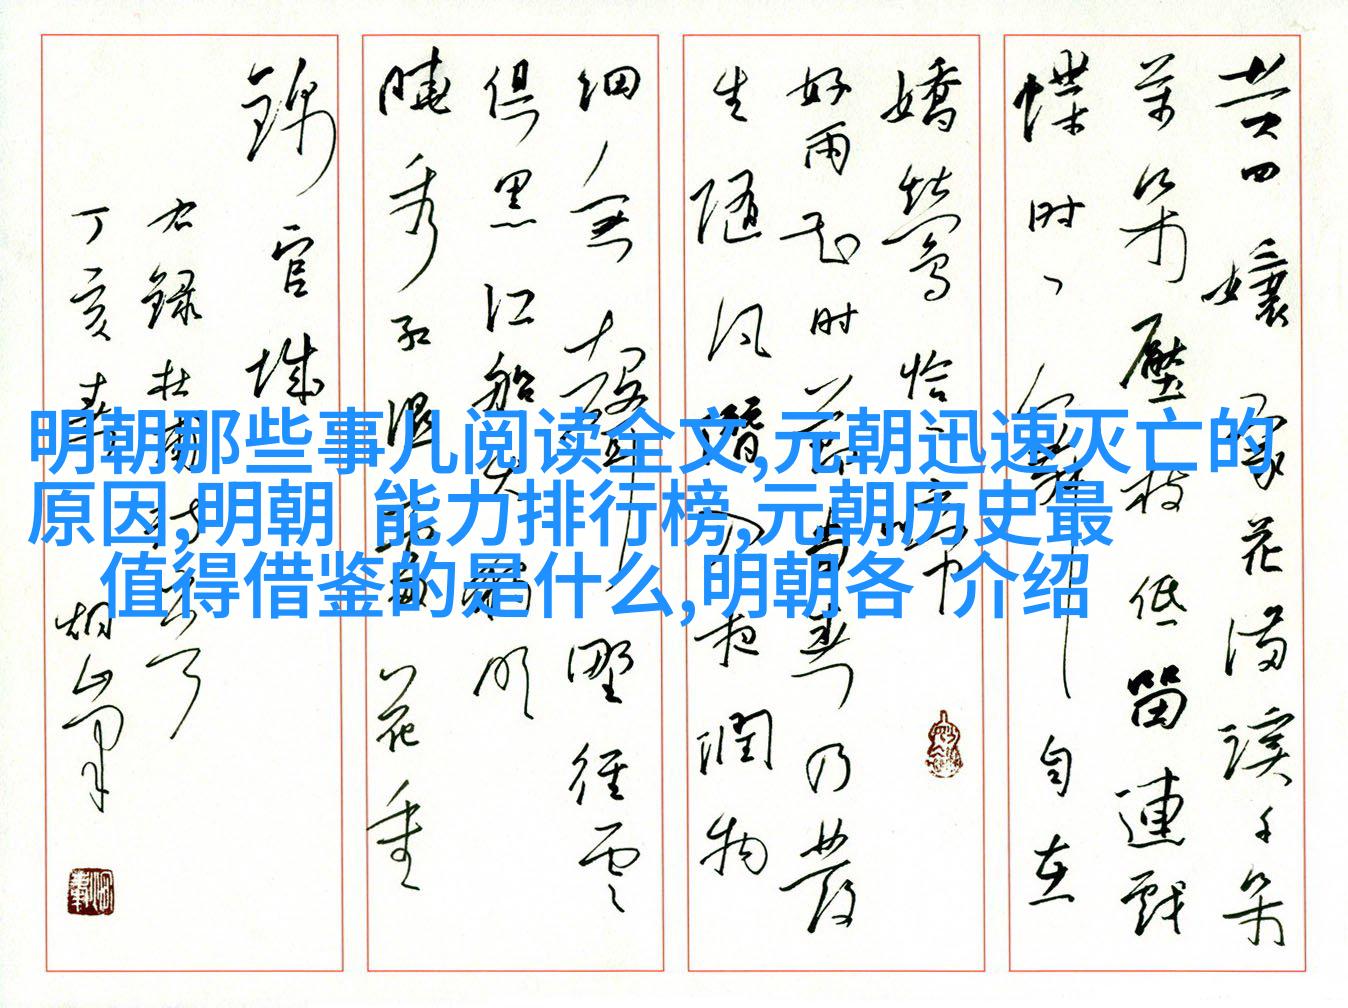 明朝那些事儿阅读全文,元朝迅速灭亡的
原因,明朝 能力排行榜,元朝历史最
值得借鉴的是什么,明朝各 介绍
黄四孃家花满溪千朵
万朵壓枝低留連戏
蝶时时舞自在
嬌莺恰恰啼
好雨知时节当春乃發
生随风潜入夜润物
细无声野径雲
俱黑江船火独明
晓看红湿处花重
锦官城
右録杜甫诗二首
丁亥春